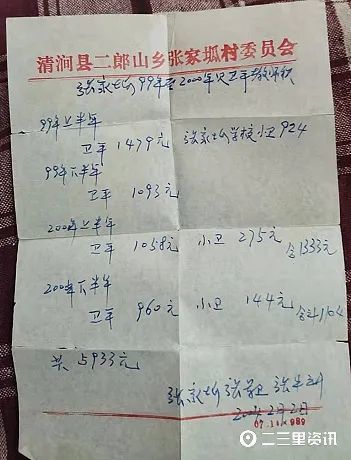 清涧县二郎山乡张家坬村委员会
张家坬99年至2000年欠卫平教师款
99年上半年
卫平 1479元 张家坬学校小卫924
99年下半年
卫平 1093元
2000年上半年
卫平 1058元 小卫 275元 合1333元
2000年下半年
卫平 960元 小卫 144元 合计1104
共 5933元
张家坬
2月2日
07.11×989
二三里资讯